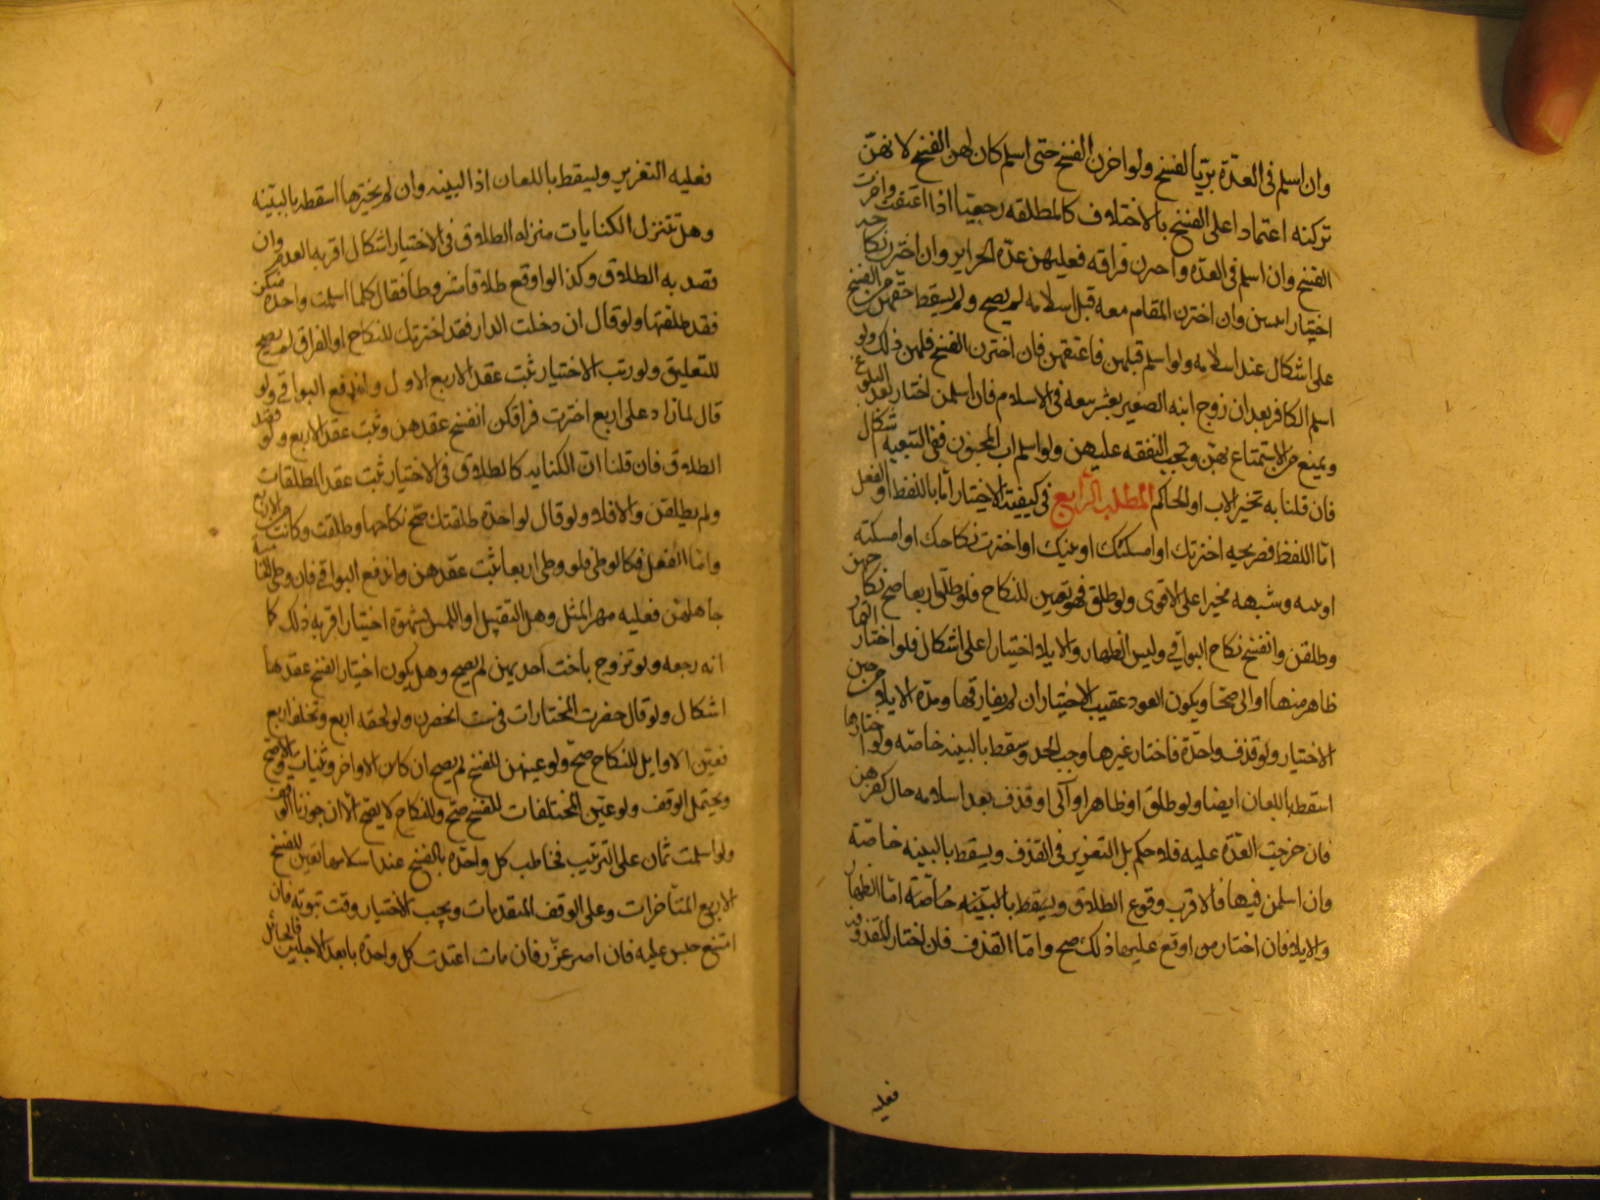 وان اسلم فى العدة بزيّا لفسخ ولو اخرن الفسخ حتى اسلم كان لهن الفسخ لانهن
تركنه اعتمادا على الفسخ بالاختلاف كالمطلقه رجعيّا اذا اعتقت واخرت
الفسخ وان اسلم فى العدة واخترن فراقه فعليهن عدة الحراير وان اخترن نكاحه
اختيار وان اخترن المقام معه قبل اسلامه لم يصح ولم يسقط حقهن من الفسخ
على اشكال عند اسلامه ولو اسلم قبلهن فاعتقهن فان اخترن الفسخ فلهن ذلك ولو
اسلم الكافر بعد ان زوج ابنه الصغير بعشر معه فى الاسلام فان اسلمن اختار بعد البلوغ
ويمنع من الاستمتاع بهن وتجب النفقه عليهن ولو اسلم اب المجنون ففى التبعيه اشكال
فان قلنا به تخير الاب او الحاكم المطلب الرابع فى كيفية الاختيار اما باللفظ او الفعل
امّا اللفظ فصريحه اخترتك او امسكتك او اخترت نكاحك او امسكته
او وشبهه مخيرا على الاقوى ولو طلق فهو تعيين للنكاح فلو طلق اربعا صح نكاحهن
وطلقن وانفسخ نكاح البواقي وليس الظهار والايلاء اختيارا على اشكال فلو اختار التى
ظاهر منها او الى صحّا ويكون العود عقيب الاختيار ان لم يفارقها ومدة الايلاء من حين
الاختيار ولو قذف واحدة فاختار غيرها وجب الحد وسقط بالبينه خاصّه ولو اختارها
اسقط باللعان ايضا ولو طلق او ظاهر او آلى او قذف بعد اسلامه حال كفرهن
فان خرجت العدّة عليه فلا حكم بل التعزير فى القذف ويسقط بالبينه خاصّة
وان اسلمن فيها فالاقرب وقوع الطلاق ويسقط بالبينه خاصّة امّا الظهار
والايلاء فان اختار من اوقع عليها ذلك صح وامّا القذف فان اختار المقذوفه
فعليه
فعليه التعزير ويسقط باللعان اذا البينه وان لم يخترها اسقطه بالبيّنه
وهل تتنزل الكنايات منزله الطلاق فى الاختيار اشكال اقربه العدم وان
قصد به الطلاق وكذا لو اوقع طلاقا مشروطا فقال كلما اسلمت واحدة منكن
فقد طلقتها ولو قال ان دخلت الدار فقد اخترتك للنكاح او الفراق لم يصح
للتعليق ولو رتب الاختيار ثبت عقد الاربع الاول واندفع البواقي ولو
قال لما زاد على اربع اخترت فراقكن انفسخ عقدهن وثبت عقد الاربع ولو قصد
الطلاق فان قلنا انّ الكنايه كالطلاق فى الاختيار ثبت عقد المطلقات
ولم يطلقن والا فلا ولو قال لواحدة طلقتك صح نكاحها وطلقت وكانت من الاربع
وامّا الفعل فكالوطى فلو وطى اربعا ثبت عقدهن واندفع البواقي فان وطى الخامسة
جاهلهن فعليه مهر المثل وهل التقبيل او اللمس بشهوة اختيار اقربه ذلك كما
انه رجعه ولو تزوج باخت احديهن لم يصح وهل يكون اختيار الفسخ عقدها
اشكال ولو قال حصرت المختارات فى ست انحصرن ولو لحقه اربع وتخلف اربع
فعيّن الاوايل للنكاح صح ولو عينهن للفسخ لم يصح ان كان الاواخر وثنيات والاصح
ويحتمل الوقف ولو عيّن المختلفات للفسخ صحّ وللنكاح لا يصح الّا ان جوزنا الوقف
ولو اسلمت ثمان على الترتيب فخاطب كل واحدة بالفسخ عند اسلامها تعين للفسخ
الاربع المتأخرات وعلى الوقف المتقدمات ويجب الاختيار وقت ثبوته فان
امتنع حبس عليه فان اصر عزّر فان مات اعتدت كل واحدة بابعد الاجلين فالحائل